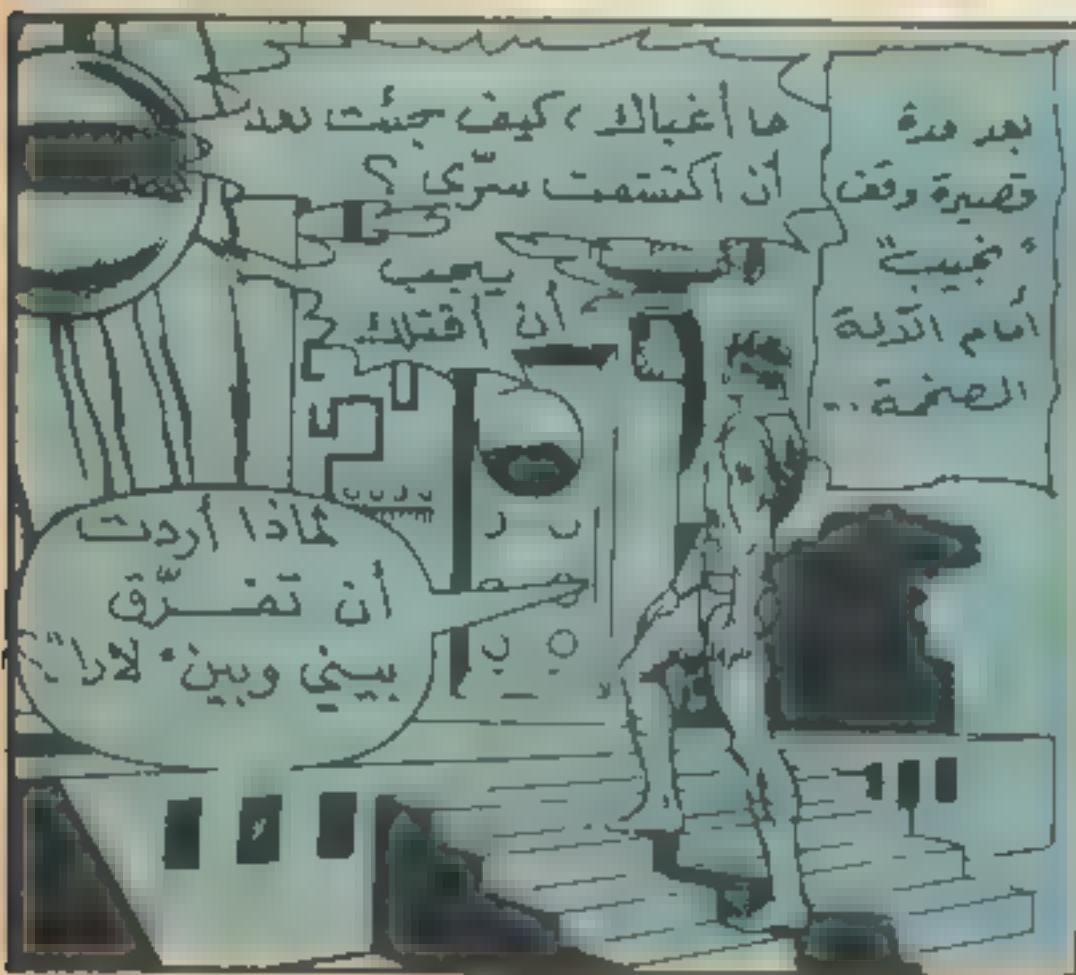 بعد مدة
قصيرة وقف
"نجيب"
أمام الآلة
الضخمة...
ما أغباك، كيف جئت بعد
أن اكتشفت سرّي؟
يجب
أن أقتلك
لماذا أردت
أن تفرّق
بيني وبين "لارا"؟